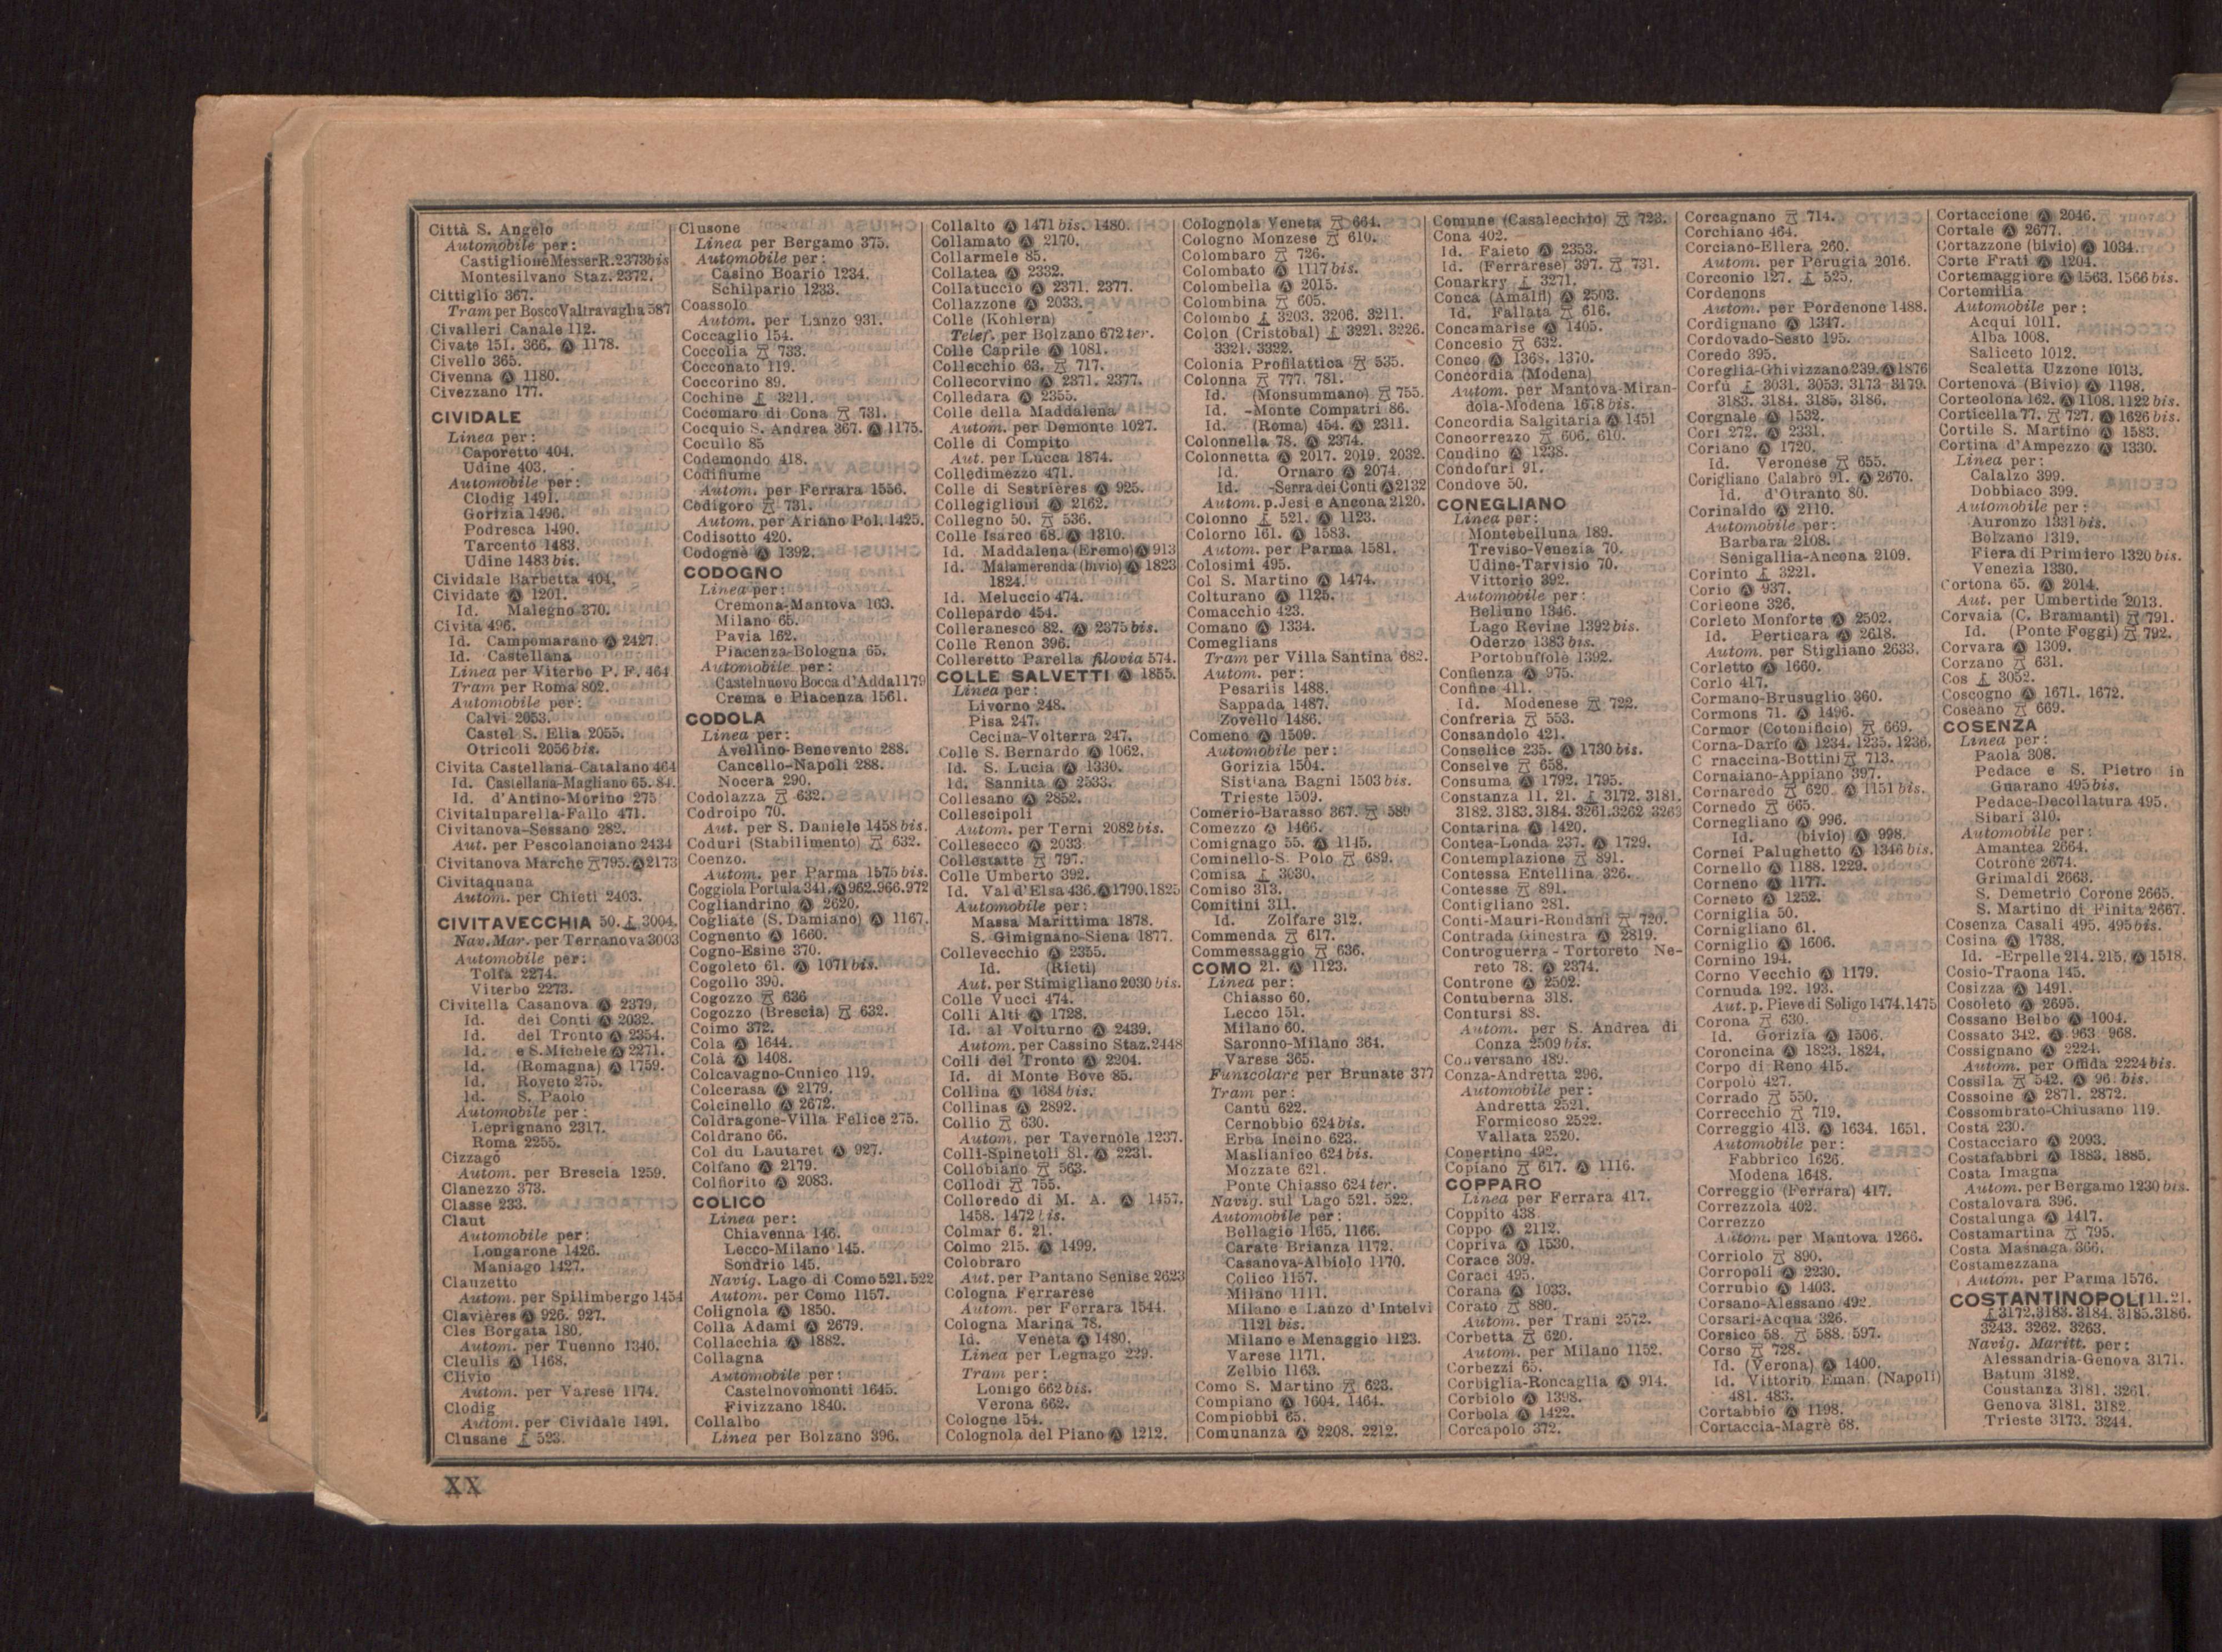 Città S. Angelo
Automobile per:
Castiglione Messer R. 2373 bis
Montesilvano Staz. 2372.
Cittiglio 367.
Tram per Bosco Valtravaglia 587
Civalleri Canale 112.
Civate 151. 366. Ⓐ 1178.
Civello 365.
Civenna Ⓐ 1180.
Civezzano 177.
CIVIDALE
Linea per:
Caporetto 404.
Udine 403.
Automobile per:
Clodig 1491.
Gorizia 1496.
Podresca 1490.
Tarcento 1483.
Udine 1483 bis.
Cividale Barbetta 404.
Cividate Ⓐ 1201.
Id. Malegno 370.
Civita 496.
Id. Campomarano Ⓐ 2427.
Id. Castellana
Linea per Viterbo P. F. 464
Tram per Roma 802.
Automobile per:
Calvi 2053.
Castel S. Elia 2055.
Otricoli 2056 bis.
Civita Castellana-Catalano 464
Id. Castellana-Magliano 65. 84.
Id. d'Antino-Morino 275
Civitaluparella-Fallo 471.
Civitanova-Sessano 282.
Aut. per Pescolanciano 2434
Civitanova Marche 795. Ⓐ 2173
Civitaquana
Autom. per Chieti 2403.
CIVITAVECCHIA 50. 3004.
Nav. Mar. per Terranova 3003
Automobile per:
Tolfa 2274.
Viterbo 2273.
Civitella Casanova Ⓐ 2379.
Id. dei Conti Ⓐ 2032.
Id. del Tronto Ⓐ 2354.
Id. e S. Michele Ⓐ 2271.
Id. (Romagna) Ⓐ 1759.
Id. Roveto 275.
Id. S. Paolo
Automobile per:
Leprignano 2317.
Roma 2255.
Cizzago
Autom. per Brescia 1259.
Clanezzo 373.
Classe 233.
Claut
Automobile per:
Longarone 1426.
Maniago 1427.
Clauzetto
Autom. per Spilimbergo 1454
Clavières Ⓐ 926. 927.
Cles Borgata 180.
Autom. per Tuenno 1340.
Cleulis Ⓐ 1468.
Clivio
Autom. per Varese 1174.
Clodig
Autom. per Cividale 1491.
Clusane 523.
Clusone
Linea per Bergamo 375.
Automobile per:
Casino Boario 1234.
Schilpario 1233.
Coassolo
Autom. per Lanzo 931.
Coccaglio 154.
Coccolia 733.
Cocconato 119.
Coccorino 89.
Cochine 3211.
Cocomaro di Cona 731.
Cocquio S. Andrea 367. Ⓐ 1175.
Cocullo 85
Codemondo 418.
Codifiume
Autom. per Ferrara 1556.
Codigoro 731.
Autom. per Ariano Pol. 1425.
Codisotto 420.
Codognè Ⓐ 1392.
CODOGNO
Linea per:
Cremona-Mantova 163.
Milano 65.
Pavia 162.
Piacenza-Bologna 65.
Automobile per:
Castelnuovo Bocca d'Adda 1179
Crema e Piacenza 1561.
CODOLA
Linea per:
Avellino-Benevento 288.
Cancello-Napoli 288.
Nocera 290.
Codolazza 632.
Codroipo 70.
Aut. per S. Daniele 1458 bis.
Coduri (Stabilimento) 632.
Coenzo.
Autom. per Parma 1575 bis.
Coggiola Portula 341. Ⓐ 962. 966. 972
Cogliandrino Ⓐ 2620.
Cogliate (S. Damiano) Ⓐ 1167.
Cognento Ⓐ 1660.
Cogno-Esine 370.
Cogoleto 61. Ⓐ 1071 bis.
Cogollo 390.
Cogozzo 636
Cogozzo (Brescia) 632.
Coimo 372.
Cola Ⓐ 1644.
Colà Ⓐ 1408.
Colcavagno-Cunico 119.
Colcerasa Ⓐ 2179.
Colcinello Ⓐ 2672.
Coldragone-Villa Felice 275.
Coldrano 66.
Col du Lautaret Ⓐ 927.
Colfano Ⓐ 2179.
Colfiorito Ⓐ 2083.
COLICO
Linea per:
Chiavenna 146.
Lecco-Milano 145.
Sondrio 145.
Navig. Lago di Como 521. 522
Autom. per Como 1157.
Colignola Ⓐ 1850.
Colla Adami Ⓐ 2679.
Collacchia Ⓐ 1882.
Collagna
Automobile per:
Castelnovomonti 1645.
Fivizzano 1840.
Collalbo
Linea per Bolzano 396.
Collalto Ⓐ 1471 bis. 1480.
Collamato Ⓐ 2170.
Collarmele 85.
Collatea Ⓐ 2332.
Collatuccio Ⓐ 2371. 2377.
Collazzone Ⓐ 2033.
Colle (Kohlern)
Telef. per Bolzano 672 ter.
Colle Caprile Ⓐ 1081.
Collecchio 63. 717.
Collecorvino Ⓐ 2371. 2377.
Colledara Ⓐ 2355.
Colle della Maddalena
Autom. per Demonte 1027.
Colle di Compito
Aut. per Lucca 1874.
Colledimezzo 471.
Colle di Sestrières Ⓐ 925.
Collegiglioni Ⓐ 2162.
Collegno 50. 536.
Colle Isarco 68. Ⓐ 1310.
Id. Maddalena (Eremo) Ⓐ 913
Id. Malamerenda (bivio) Ⓐ 1823
1824.
Id. Meluccio 474.
Collepardo 454.
Colleranesco 82. Ⓐ 2375 bis.
Colle Renon 396.
Colleretto Parella filovia 574.
COLLE SALVETTI Ⓐ 1855.
Linea per:
Livorno 248.
Pisa 247.
Cecina-Volterra 247.
Colle S. Bernardo Ⓐ 1062.
Id. S. Lucia Ⓐ 1330.
Id. Sannita Ⓐ 2533.
Collesano Ⓐ 2852.
Collescipoli
Autom. per Terni 2082 bis.
Collesecco Ⓐ 2033
Collestatte 797.
Colle Umberto 392.
Id. Val d'Elsa 436. Ⓐ 1790. 1825
Automobile per:
Massa Marittima 1878.
S. Gimignano-Siena 1877.
Collevecchio Ⓐ 2355.
Id. (Rieti)
Aut. per Stimigliano 2030 bis.
Colle Vucci 474.
Colli Alti Ⓐ 1728.
Id. al Volturno Ⓐ 2439.
Autom. per Cassino Staz. 2448
Colli del Tronto Ⓐ 2204.
Id. di Monte Bove 85.
Collina Ⓐ 1684 bis.
Collinas Ⓐ 2892.
Collio 630.
Autom. per Tavernole 1237.
Colli-Spinetoli 81. Ⓐ 2231.
Collobiano 563.
Collodi 755.
Colloredo di M. A. Ⓐ 1457.
1458. 1472 bis.
Colmar 6. 21.
Colmo 215. Ⓐ 1499.
Colobraro
Aut. per Pantano Senise 2623
Cologna Ferrarese
Autom. per Ferrara 1544.
Cologna Marina 78.
Id. Veneta Ⓐ 1480.
Linea per Legnago 229.
Tram per:
Lonigo 662 bis.
Verona 662.
Cologne 154.
Colognola del Piano Ⓐ 1212.
Colognola Veneta 664.
Cologno Monzese 610.
Colombaro 726.
Colombato Ⓐ 1117 bis.
Colombella Ⓐ 2015.
Colombina 605.
Colombo 3203. 3206. 3211.
Colon (Cristobal) 3221. 3226.
3321. 3322.
Colonia Profilattica 535.
Colonna 777. 781.
Id. (Monsummano) 755.
Id. -Monte Compatri 86.
Id. (Roma) 454. Ⓐ 2311.
Colonnella 78. Ⓐ 2374.
Colonnetta Ⓐ 2017. 2019. 2032.
Id. Ornaro Ⓐ 2074.
Id. -Serra dei Conti Ⓐ 2132
Autom. p. Jesi e Ancona 2120.
Colonno 521. Ⓐ 1123.
Colorno 161. Ⓐ 1583.
Autom. per Parma 1581.
Colosimi 495.
Col S. Martino Ⓐ 1474.
Colturano Ⓐ 1125.
Comacchio 423.
Comano Ⓐ 1334.
Comeglians
Tram per Villa Santina 682.
Autom. per:
Pesariis 1488.
Sappada 1487.
Zovello 1486.
Comeno Ⓐ 1509.
Automobile per:
Gorizia 1504.
Sistiana Bagni 1503 bis.
Trieste 1509.
Comerio-Barasso 367. 589
Comezzo Ⓐ 1466.
Comignago 55. Ⓐ 1145.
Cominello-S. Polo 689.
Comisa 3030.
Comiso 313.
Comitini 311.
Id. Zolfare 312.
Commenda 617.
Commessaggio 636.
COMO 21. Ⓐ 1123.
Linea per:
Chiasso 60.
Lecco 151.
Milano 60.
Saronno-Milano 364.
Varese 365.
Funicolare per Brunate 377
Tram per:
Cantù 622.
Cernobbio 624 bis.
Erba Incino 623.
Maslianico 624 bis.
Mozzate 621.
Ponte Chiasso 624 ter.
Navig. sul Lago 521. 522.
Automobile per:
Bellagio 1165. 1166.
Carate Brianza 1172.
Casanova-Albiolo 1170.
Colico 1157.
Milano 1111.
Milano e Lanzo d'Intelvi
1121 bis.
Milano e Menaggio 1123.
Varese 1171.
Zelbio 1163.
Como S. Martino 623.
Compiano Ⓐ 1604. 1464.
Compiobbi 65.
Comunanza Ⓐ 2208. 2212.
Comune (Casalecchio) 723.
Cona 402.
Id. Faieto Ⓐ 2353.
Id. (Ferrarese) 397. 731.
Conarkry 3271.
Conca (Amalfi) Ⓐ 2503.
Id. Fallata 616.
Concamarise Ⓐ 1405.
Concesio 632.
Conco Ⓐ 1368. 1370.
Concordia (Modena)
Autom. per Mantova-Miran-
dola-Modena 1678 bis.
Concordia Salgitaria Ⓐ 1451
Concorrezzo 606. 610.
Condino Ⓐ 1238.
Condofuri 91.
Condove 50.
CONEGLIANO
Linea per:
Montebelluna 189.
Treviso-Venezia 70.
Udine-Tarvisio 70.
Vittorio 392.
Automobile per:
Belluno 1346.
Lago Revine 1392 bis.
Oderzo 1383 bis.
Portobuffolè 1392.
Confienza Ⓐ 975.
Confine 411.
Id. Modenese 722.
Confreria 553.
Consandolo 421.
Conselice 235. Ⓐ 1730 bis.
Conselve 658.
Consuma Ⓐ 1792. 1795.
Constanza 11. 21. 3172. 3181.
3182. 3183. 3184. 3261. 3262 3263
Contarina Ⓐ 1420.
Contea-Londa 237. Ⓐ 1729.
Contemplazione 891.
Contessa Entellina 326.
Contesse 891.
Contigliano 281.
Conti-Mauri-Rondani 720.
Contrada Ginestra Ⓐ 2819.
Controguerra - Tortoreto Ne-
reto 78. Ⓐ 2374.
Controne Ⓐ 2502.
Contuberna 318.
Contursi 88.
Autom. per S. Andrea di
Conza 2509 bis.
Conversano 489.
Conza-Andretta 296.
Automobile per:
Andretta 2521.
Formicoso 2522.
Vallata 2520.
Copertino 492.
Copiano 617. Ⓐ 1116.
COPPARO
Linea per Ferrara 417.
Coppito 438.
Coppo Ⓐ 2112.
Copriva Ⓐ 1530.
Corace 309.
Coraci 495.
Corana Ⓐ 1033.
Corato 880.
Autom. per Trani 2572.
Corbetta 620.
Autom. per Milano 1152.
Corbezzi 65.
Corbiglia-Roncaglia Ⓐ 914.
Corbiolo Ⓐ 1398.
Corbola Ⓐ 1422.
Corcapolo 372.
Corcagnano 714.
Corchiano 464.
Corciano-Ellera 260.
Autom. per Perugia 2016.
Corconio 127. 525.
Cordenons
Autom. per Pordenone 1488.
Cordignano Ⓐ 1347.
Cordovado-Sesto 195.
Coredo 395.
Coreglia-Ghivizzano 239. Ⓐ 1876
Corfù 3031. 3053. 3173 3179.
3183. 3184. 3185. 3186.
Corgnale Ⓐ 1532.
Cori 272. Ⓐ 2331.
Coriano Ⓐ 1720.
Id. Veronese 655.
Corigliano Calabro 91. Ⓐ 2670.
Id. d'Otranto 80.
Corinaldo Ⓐ 2110.
Automobile per:
Barbara 2108.
Senigallia-Ancona 2109.
Corinto 3221.
Corio Ⓐ 937.
Corleone 326.
Corleto Monforte Ⓐ 2502.
Id. Perticara Ⓐ 2618.
Autom. per Stigliano 2633.
Corletto Ⓐ 1660.
Corlo 417.
Cormano-Brusuglio 360.
Cormons 71. Ⓐ 1496.
Cormor (Cotonificio) 669.
Corna-Darfo Ⓐ 1234. 1235. 1236.
C rnaccina-Bottini 713.
Cornaiano-Appiano 397.
Cornaredo 620. Ⓐ 1151 bis.
Cornedo 665.
Cornegliano Ⓐ 996.
Id. (bivio) Ⓐ 998.
Cornei Palughetto Ⓐ 1346 bis.
Cornello Ⓐ 1188. 1229.
Corneno Ⓐ 1177.
Corneto Ⓐ 1252.
Corniglia 50.
Cornigliano 61.
Corniglio Ⓐ 1606.
Cornino 194.
Corno Vecchio Ⓐ 1179.
Cornuda 192. 193.
Aut. p. Pieve di Soligo 1474. 1475
Corona 630.
Id. Gorizia Ⓐ 1506.
Coroncina Ⓐ 1823. 1824.
Corpo di Reno 415.
Corpolò 427.
Corrado 550.
Correcchio 719.
Correggio 413. Ⓐ 1634. 1651.
Automobile per:
Fabbrico 1626.
Modena 1648.
Correggio (Ferrara) 417.
Correzzola 402.
Correzzo
Autom. per Mantova 1266.
Corriolo 890.
Corropoli Ⓐ 2230.
Corrubio Ⓐ 1403.
Corsano-Alessano 492.
Corsari-Acqua 326.
Corsico 58. 588. 597.
Corso 728.
Id. (Verona) Ⓐ 1400.
Id. Vittorio Eman. (Napoli)
481. 483.
Cortabbio Ⓐ 1198.
Cortaccia-Magrè 68.
Cortaccione Ⓐ 2046.
Cortale Ⓐ 2677.
Cortazzone (bivio) Ⓐ 1034.
Corte Frati Ⓐ 1204.
Cortemaggiore Ⓐ 1563. 1566 bis.
Cortemilia
Automobile per:
Acqui 1011.
Alba 1008.
Saliceto 1012.
Scaletta Uzzone 1013.
Cortenova (Bivio) Ⓐ 1198.
Corteolona 162. Ⓐ 1108. 1122 bis.
Corticella 77. 727. Ⓐ 1626 bis.
Cortile S. Martino Ⓐ 1583.
Cortina d'Ampezzo Ⓐ 1330.
Linea per:
Calalzo 399.
Dobbiaco 399.
Automobile per:
Auronzo 1331 bis.
Bolzano 1319.
Fiera di Primiero 1320 bis.
Venezia 1330.
Cortona 65. Ⓐ 2014.
Aut. per Umbertide 2013.
Corvaia (C. Bramanti) 791.
Id. (Ponte Foggi) 792.
Corvara Ⓐ 1309.
Corzano 631.
Cos 3052.
Coscogno Ⓐ 1671. 1672.
Coseano 669.
COSENZA
Linea per:
Paola 308.
Pedace e S. Pietro in
Guarano 495 bis.
Pedace-Decollatura 495.
Sibari 310.
Automobile per:
Amantea 2664.
Cotrone 2674.
Grimaldi 2663.
S. Demetrio Corone 2665.
S. Martino di Finita 2667.
Cosenza Casali 495. 495 bis.
Cosina Ⓐ 1738.
Id. -Erpelle 214. 215. Ⓐ 1518.
Cosio-Traona 145.
Cosizza Ⓐ 1491.
Cosoleto Ⓐ 2695.
Cossano Belbo Ⓐ 1004.
Cossato 342. Ⓐ 963 968.
Cossignano Ⓐ 2224.
Autom. per Offida 2224 bis.
Cossila 542. Ⓐ 96 bis.
Cossoine Ⓐ 2871. 2872.
Cossombrato-Chiusano 119.
Costa 230.
Costacciaro Ⓐ 2093.
Costafabbri Ⓐ 1883. 1885.
Costa Imagna
Autom. per Bergamo 1230 bis.
Costalovara 396.
Costalunga Ⓐ 1417.
Costamartina 795.
Costa Masnaga 366.
Costamezzana
Autom. per Parma 1576.
COSTANTINOPOLI 11. 21.
3172. 3183. 3184. 3185. 3186.
3243. 3262. 3263.
Navig. Maritt. per:
Alessandria-Genova 3171.
Batum 3182.
Constanza 3181. 3261.
Genova 3181. 3182.
Trieste 3173. 3244.
XX